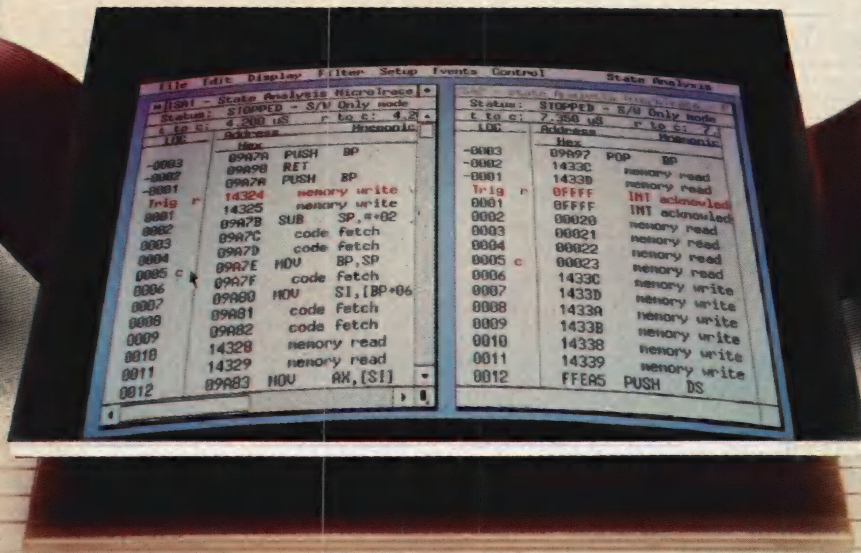 File Edit Display Filter Setup Events Control State Analysis
SA1 - State Analysis MicroTrace
Status: STOPPED - S/W Only mode
t to c: 4.200 uS r to c: 4.2
LOC Address Mnemonic
Hex
-0003 09A7A PUSH BP
-0002 09A90 RET
-0001 09A7A PUSH BP
Trig r 14324 memory write
0001 14325 memory write
0002 09A7B SUB SP,#+02
0003 09A7C code fetch
0004 09A7D code fetch
0005 c 09A7E MOV BP,SP
0006 09A7F code fetch
0007 09A80 MOV SI,[BP+06
0008 09A81 code fetch
0009 09A82 code fetch
0010 14328 memory read
0011 14329 memory read
0012 09A83 MOV AX,[SI]
State Analysis MicroTrace
Status: STOPPED - S/W Only mode
t to c: 7.350 uS r to c: 7.
LOC Address Mnemonic
Hex
-0003 09A97 POP BP
-0002 1433C memory read
-0001 1433D memory read
Trig r 0FFFF INT acknowled
0001 0FFFF INT acknowled
0002 00020 memory read
0003 00021 memory read
0004 00022 memory read
0005 c 00023 memory read
0006 1433C memory write
0007 1433D memory write
0008 1433A memory write
0009 1433B memory write
0010 14338 memory write
0011 14339 memory write
0012 FFEA5 PUSH DS